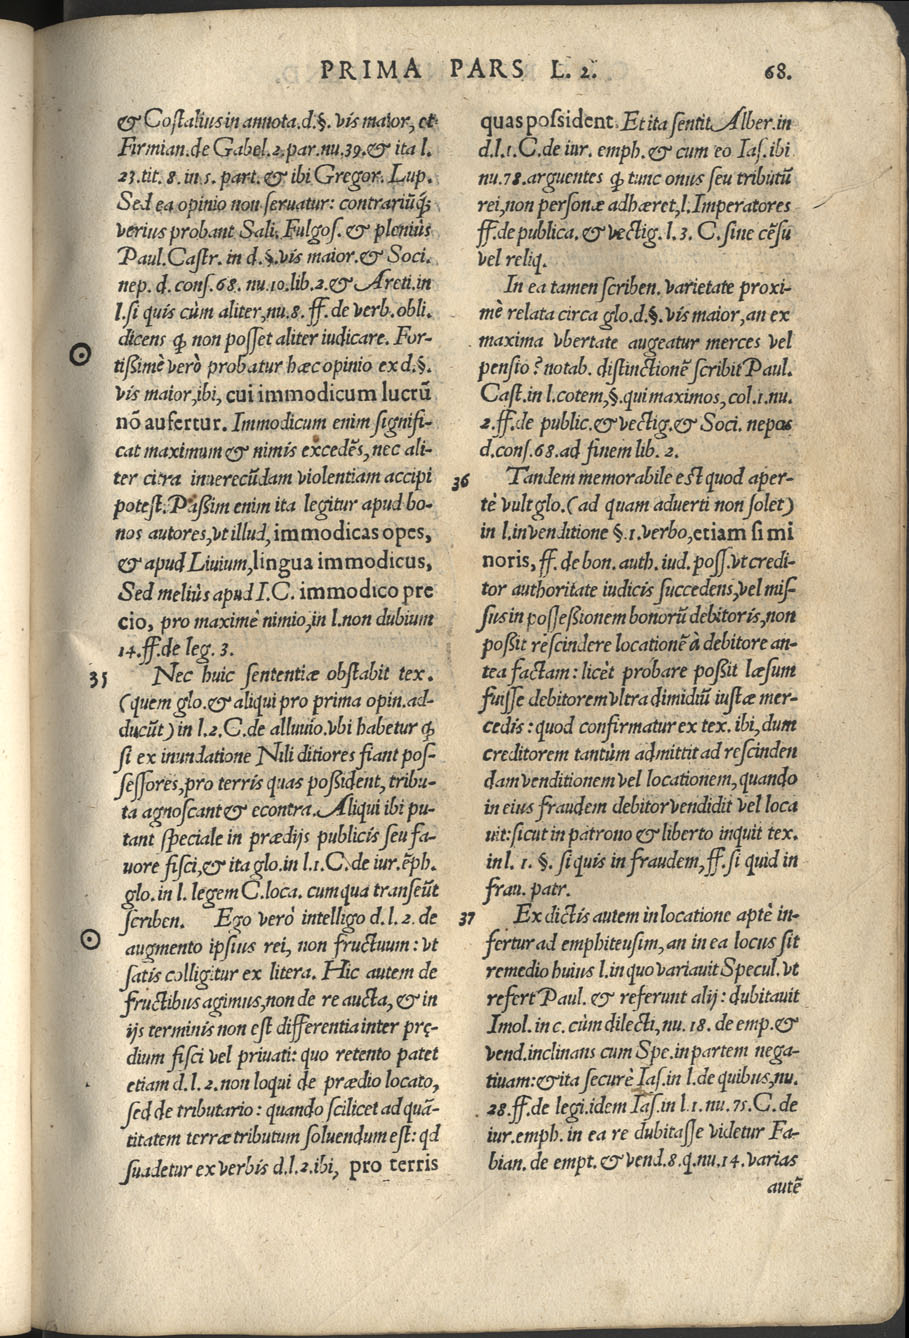 PRIMA PARS L. 2. 68.
& Costalius in annota.d.§. vis maior, et
Firmian.de Gabel.2.par.nu.39.& ita l.
23.tit. 8. in 5. part. & ibi Gregor. Lup.
Sed ea opinio non seruatur: contrariūq́;
verius probant Sali. Fulgos. & pleniùs
Paul.Castr. in d.§.vis maior.& Soci.
nep. d. cons. 68. nu.10.lib.2.& Areti.in
l.si quis cùm aliter,nu.8. ff. de verb.obli.
dicens ꝙ non posset aliter iudicare. For-
tißimè verò probatur hæc opinio ex d.§.
vis maior,ibi, cui immodicum lucrū
nō aufertur. Immodicum enim signifi-
cat maximum & nimis excedēs, nec ali-
ter citra inuerecūdam violentiam accipi
potest.Paßim enim ita legitur apud bo-
nos autores,vt illud, immodicas opes,
& apud Liuium,lingua immodicus,
Sed meliùs apud I.C. immodico pre
cio, pro maximè nimio,in l.non dubium
14.ff.de leg. 3.
35 Nec huic sententiæ obstabit tex.
(quem glo.& aliqui pro prima opin.ad-
ducūt) in l.2.C.de alluuio.vbi habetur ꝙ
si ex inundatione Nili ditiores fiant pos-
sessores,pro terris quas poßident, tribu-
ta agnoscant & econtra. Aliqui ibi pu-
tant speciale in prædijs publicis seu fa-
uore fisci,& ita glo.in l.1.C.de iur.ēph.
glo.in l. legem C.loca. cum qua transeūt
scriben. Ego verò intelligo d.l. 2. de
augmento ipsius rei, non fructuum: vt
satis colligitur ex litera. Hic autem de
fructibus agimus,non de re aucta, & in
ijs terminis non est differentia inter prę-
dium fisci vel priuati: quo retento patet
etiam d.l.2.non loqui de prædio locato,
sed de tributario : quando scilicet ad quā-
titatem terræ tributum soluendum est: qd
suadetur ex verbis d.l.2.ibi, pro terris
quas possident. Et ita sentit Alber.in
d.l.1.C.de iur. emph. & cum eo Ias. ibi
nu.78.arguentes ꝙ tunc onus seu tributū
rei,non personæ adhæret,l.Imperatores
ff.de publica. & vectig. l. 3. C. sine cēsu
vel reliq.
In ea tamen scriben. varietate proxi-
mè relata circa glo.d.§. vis maior,an ex
maxima vbertate augeatur merces vel
pensio? notab. distinctionē scribit Paul.
Cast.in l.cotem,§.qui maximos, col.1.nu.
2.ff.de public.& vectig.& Soci. nepos
d.cons.68.ad finem lib. 2.
36 Tandem memorabile est quod aper-
tè vult glo.(ad quam aduerti non solet)
in l.in venditione §.1.verbo,etiam si mi
noris, ff. de bon. auth. iud. poss.vt credi-
tor authoritate iudicis succedens,vel mis-
sus in possessionem bonorū debitoris,non
poßit rescindere locationē à debitore an-
tea factam: licèt probare poßit læsum
fuisse debitorem vltra dimidiū iustæ mer-
cedis : quod confirmatur ex tex. ibi, dum
creditorem tantùm admittit ad rescinden
dam venditionem vel locationem, quando
in eius fraudem debitor vendidit vel loca
uit:sicut in patrono & liberto inquit tex.
in l. 1. §. si quis in fraudem, ff. si quid in
frau. patr.
37 Ex dictis autem in locatione aptè in-
fertur ad emphiteusim, an in ea locus sit
remedio huius l.in quo variauit Specul.vt
refert Paul. & referunt alij : dubitauit
Imol.in c. cùm dilecti, nu. 18. de emp.&
vend.inclinans cum Spe.in partem nega-
tiuam:& ita securè Ias.in l.de quibus,nu.
28.ff.de legi.idem Ias.in l.1. nu.75.C.de
iur.emph. in ea re dubitasse videtur Fa-
bian. de empt. & vend.8.q.nu.14.varias
autē